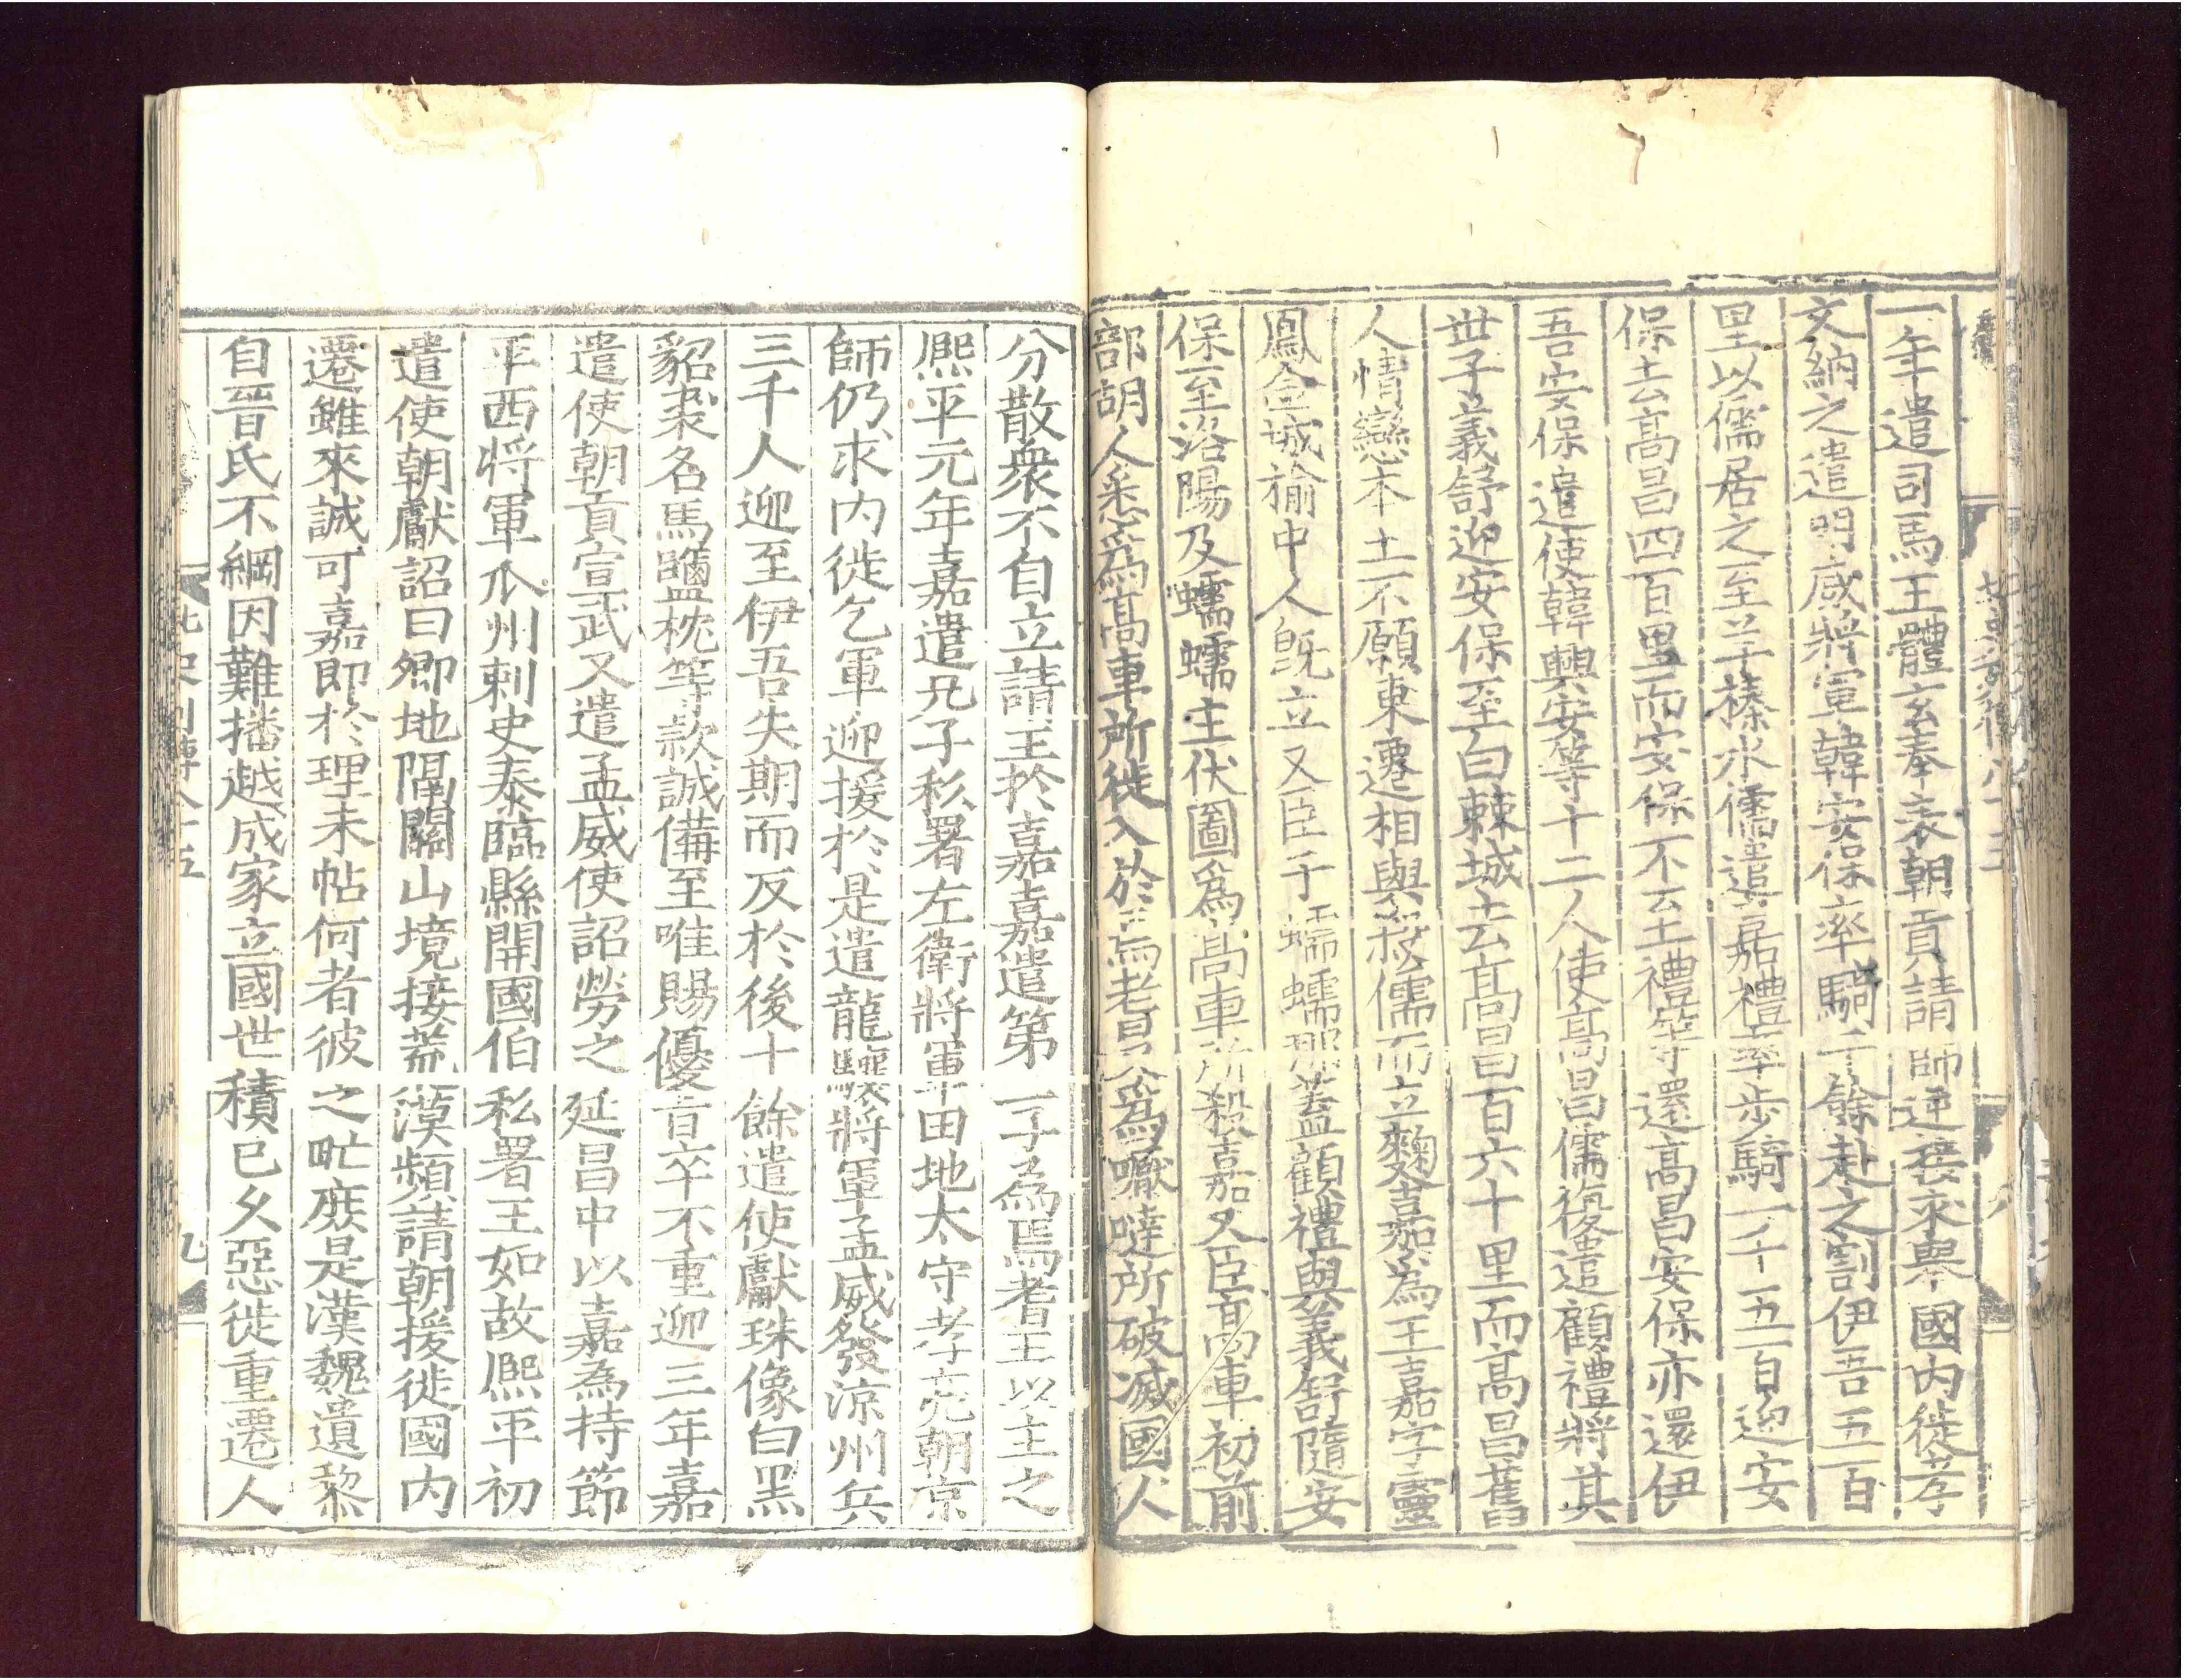 一年遣司馬王體玄奉表朝貢請師逆接求舉國內徙孝
文納之遣明威將軍韓安保率騎千餘赴之割伊吾五百
里以儒居之至羊榛水儒遣嘉禮率步騎一千五百迎安
保去高昌四百里而安保不至禮等還高昌安保亦還伊
吾安保遣使韓興安等十二人使高昌儒復遣顧禮將其
世子義舒迎安保至白棘城去高昌百六十里而高昌舊
人情戀本土不願東遷相與殺儒而立麴嘉為王嘉字靈
鳳金城榆中人既立又臣于蠕蠕那蓋顧禮與義舒隨安
保至洛陽及蠕蠕主伏圖爲高車所殺嘉又臣高車初前
部胡人悉爲高車所徙入於焉耆又爲嚈噠所破滅國人
分散衆不自立請王於嘉嘉遣第二子為焉耆王以主之
熈平元年嘉遣兄子私署左衛將軍田地太守孝亮朝京
師仍求內徙乞軍迎援於是遣龍驤將軍孟威發涼州兵
三千人迎至伊吾失期而反於後十餘遣使獻珠像白黑
貂裘名馬鹽枕等款誠備至唯賜優旨卒不重迎三年嘉
遣使朝貢宣武又遣孟威使詔勞之延昌中以嘉為持節
平西將軍瓜州刺史泰臨縣開國伯私署王如故熈平初
遣使朝獻詔曰卿地隔關山境接荒漠頻請朝援徙國內
遷雖來誠可嘉即於理未帖何者彼之甿庶是漢魏遺黎
自晉氏不綱因難播越成家立國世積已久惡徙重遷人
北史列傳八十五
九